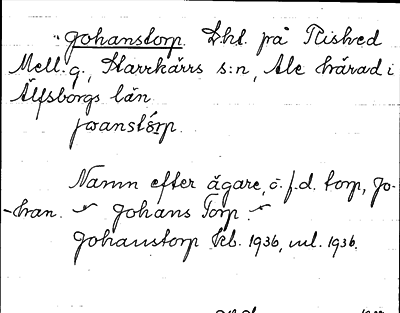 Johanstorp. Lht. på Rished
Mell.g., Starrkärrs s:n, Ale härad i
Älfsborgs län.
jo̱anstó̱rp.
Namn efter ägare, ä. f.d. torp, Jo-
-han. Johans Torp
Johanstorp kb. 1936, ml. 1936.